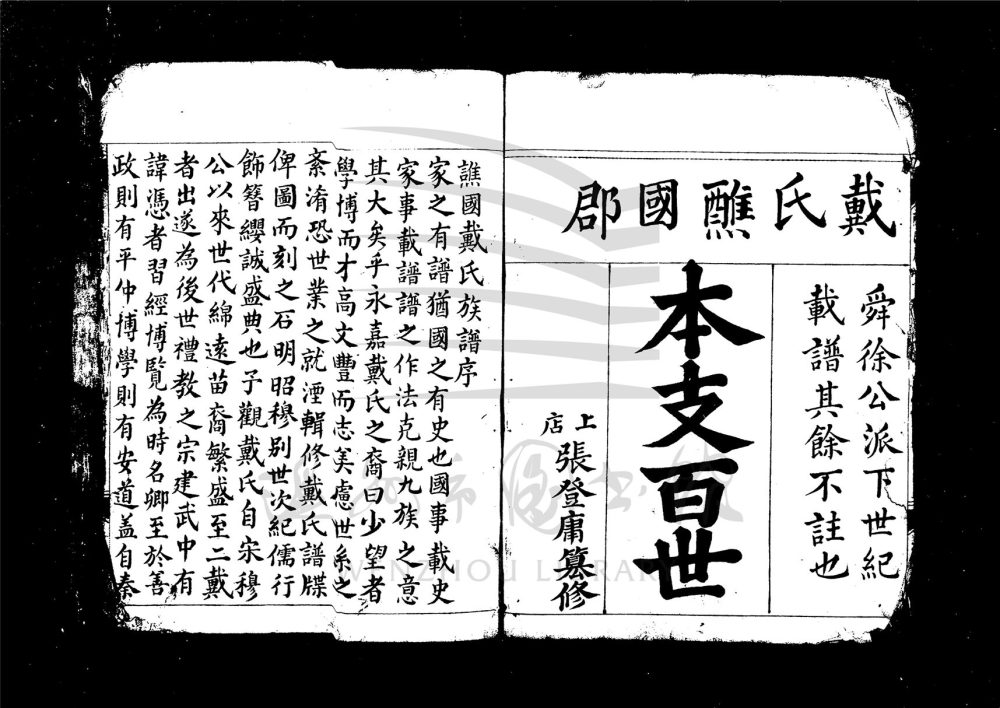 戴氏醮國郡
舜徐公派下世紀
載譜其餘不註也
本支百世
上店
張登庸纂修
譙國戴氏族譜序
家之有譜猶國之有史也國事載史
家事載譜譜之作法克親九族之意
其大矣乎永嘉戴氏之裔曰少望者
學博而才高文豐而志美慮世系之
紊淆恐世業之就湮輯修戴氏譜牒
俾圖而刻之石明昭穆别世次紀儒行
飾簪纓誠盛典也予觀戴氏自宋穆
公以來世代綿遠苗裔繁盛至二戴
者出遂為後世禮教之宗建武中有
諱憑者習經博覽為時名卿至於善
政則有平仲博學則有安道盖自秦
WENZHOU LIBRARY